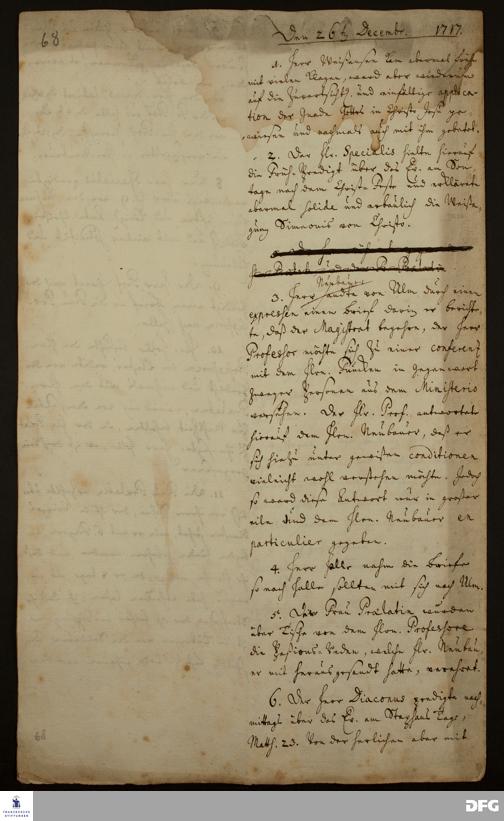 68
Den 26ten Decembr. 1717.
1. Herr Weißensee kam abermal
mit vielen Klagen, ward aber wiederum
auf die Zuversicht und einfältige applica-
tion der Gnade Gottes in Christo Jesu ge-
wiesen und nachmals auch mit ihm gebetet.
2. Der Hr. Specialis hielte hierauf
die Früh-Predigt über das Ev. am Son-
tage nach dem Christ-Feste und erklärte
abermal solide und erbaulich die Weißa-
gung Simeonis von Christo.
Neubauer
3. Herr sandte von Ulm durch einen
expressen einen Brief darin er berichte-
te, daß der Magistrat begehre, der Herr
Professor möchte sich zu einer conferenz
mit dem Hrn. in Gegenwart
zweyer Personen aus dem Ministerio
verstehen. Der Hr. Prof. antwortete
hierauf dem Hrn. Neubauer, daß er
sich hiezu unter gewißen conditionen
vielleicht wohl verstehen möchte. Jedoch
so ward diese Antwort nur in großer
eile und dem Hrn. Neubauer en
particulier gegeben.
4. Herr nahm die Briefe
so nach Halle sollten mit sich nach Ulm.
5. Der Frau Praelatin wurden
über Tische von dem Hrn. Professore
die Paßions-Reden, welche Hr. Neubau-
er mit herausgesandt hatte, verehret.
6. Der Herr Diaconus predigte nach-
mittags über das Ev. am Stephans Tage,
Matth. 23. Von der herlichen aber mit
68
FRANCKESCHE
STIFTUNGEN
DFG